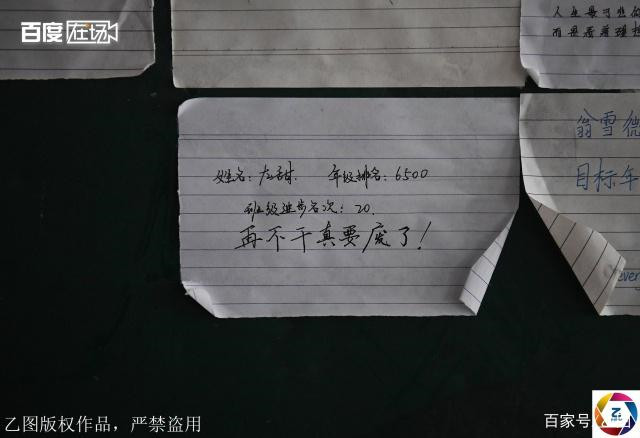 百度 在场
人生最可悲的
而是看着理想
姓名：左甜. 年级排名：6500
班级进步名次：20.
再不干真要废了！
翁雪
目标年
ever
乙图版权作品，严禁盗用
百家号
乙图